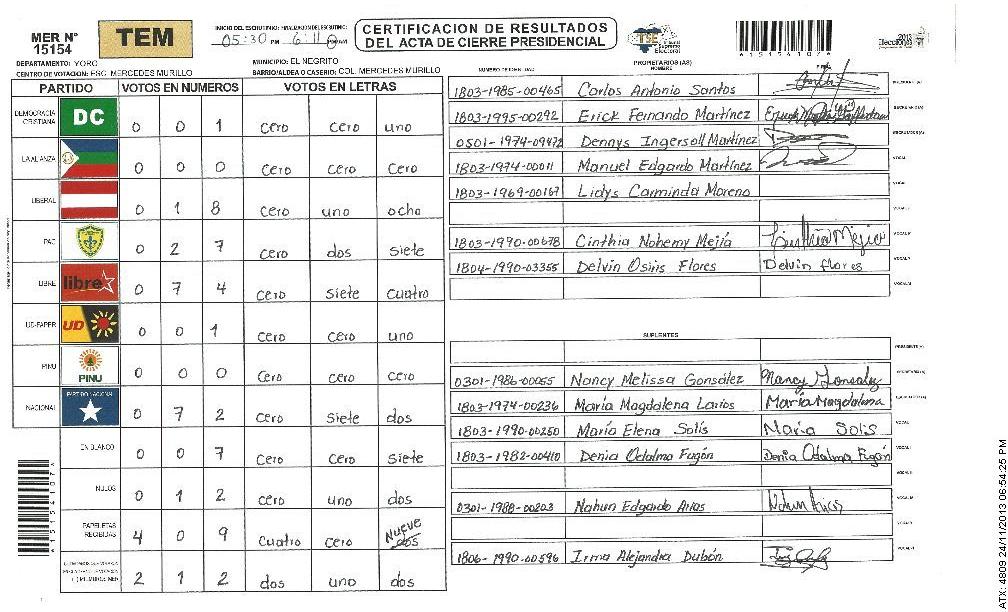 MER Nº
15154
TEM
INICIO DEL ESCRUTINIO: FINALIZACION DEL ESCRUTINIO:
05:30 PM 6:11
CERTIFICACION DE RESULTADOS
DEL ACTA DE CIERRE PRESIDENCIAL
TSE Tribunal Supremo Electoral
A15154107A
2013
Elecciones
DEPARTAMENTO: YORO
MUNICIPIO: EL NEGRITO
CENTRO DE VOTACION: ESC. MERCEDES MURILLO
BARRIO/ALDEA O CASERIO: COL. MERCEDES MURILLO
PARTIDO VOTOS EN NUMEROS VOTOS EN LETRAS
DEMOCRACIA CRISTIANA DC 0 0 1 cero cero uno
LA ALIANZA 0 0 0 cero cero cero
LIBERAL 0 1 8 cero uno ocho
PAC 0 2 7 cero dos siete
LIBRE libre 0 7 4 cero siete cuatro
UD-FAPER UD 0 0 1 cero cero uno
PINU PINU 0 0 0 cero cero cero
NACIONAL PARTIDO NACIONAL 0 7 2 cero siete dos
EN BLANCO 0 0 7 cero cero siete
NULOS 0 1 2 cero uno dos
PAPELETAS RECIBIDAS 4 0 9 cuatro cero Nueve dos
2 1 2 dos uno dos
A15154107A
NUMERO DE IDENTIDAD
PROPIETARIOS (AS)
NOMBRE
1803-1985-00465 Carlos Antonio Santos PRESIDENTE (A)
1803-1995-00292 Erick Fernando Martínez SECRETARIO (A)
0501-1974-09472 Dennys Ingersoll Martínez ESCRUTADOR (A)
1803-1974-00011 Manuel Edgardo Martínez VOCAL
1803-1969-00167 Lidys Carminda Moreno VOCAL
1803-1990-00678 Cinthia Nohemy Mejía Cinthia Mejia
1804-1990-03355 Delvin Osiris Flores Delvin flores
SUPLENTES
PRESIDENTE (A)
0301-1986-00055 Nancy Melissa Gonsález Nancy Gonsalez SECRETARIO (A)
1803-1974-00236 María Magdalena Larios María Magdalena
1803-1990-00250 María Elena Solís María Solis VOCAL
1803-1982-00410 Denia Odalma Fugón Denia Odalma Fugón
0301-1988-00203 Nahun Edgardo Arias Nahun Arias
1806-1990-00596 Irma Alejandra Dubón
ATX: 4809 24/11/2013 06:54:25 PM